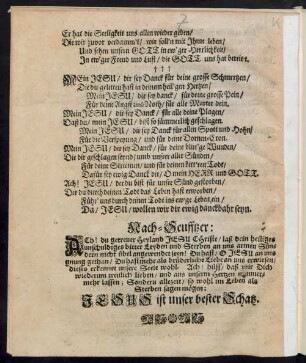 Er hat die Seeligkeit uns allen wieder geben/
Die wir zuvor verdammt/ wir soll'n mit Ihme leben/
Und sehen unsern GOTT in ew'ger Herrlichkeit/
In ew'ger Freud und Lust/ die GOTT uns hat bereit't.
† † †
MEin JESU/ dir sey Danck für deine grosse Schmertzen/
Die du gelitten hast in deinem heil'gen Hertzen/
Mein JESU/ dir sey danck/ für deine grosse Pein/
Für deine Angst und Noth/ für alle Marter dein.
Mein JESU/ dir sey Danck/ für alle deine Plagen/
Daß du/ mein JESU/ bist so kümmerlich geschlagen/
Mein JESU/ dir sey Danck für allen Spott und Hohn/
Für die Verspeyung/ und für deine Dornen-Cron.
Mein JESU/ dir sey Danck/ für deine blut'ge Wunden/
Die dir geschlagen seynd/ umb unser aller Sünden/
Für deine Creutzigung/ und für deinen bittren Tode/
Dafür sey ewig Danck dir/ O mein HERR und GOTT.
Ach! JESU/ der du bist für unsre Sünd gestorben/
Der du durch deinen Todt das Leben hast erworben/
Führ' uns durch deinen Todt ins ewge Leben ein/
Da/ JESU/ wollen wir dir ewig danckbahr seyn.
Nach-Seuftzer:
ACh! du getreuer Heyland JESU Christe/ laß dein heiliges
unschuldiges bitter Leyden und Sterben an uns armen Sün-
dern nicht übel angewendet seyn! Du hast/ O JESU an uns
gnung gethan/ Du hast mehr als brüderliche Liebe an uns erwiesen/
dieses erkennet unsere Seele wohl. Ach! hilff/ daß wir Dich
wiederumb lieben/ und aus unserm Hertzen nimmer-
mehr lassen; Sondern allezeit/ so wohl im Leben als
Sterben sagen mögen:
JESUS ist unser bester Schatz.